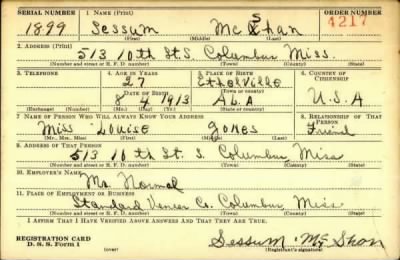 SERIAL NUMBER 1. NAME (Print) ORDER NUMBER
1899 Sessum McShan 4217
(First) (Middle) (Last)
2. ADDRESS (Print)
513 10th St. S. Columbus Miss.
(Number and street or R. F. D. number) (Town) (County) (State)
3. TELEPHONE 4. AGE IN YEARS 5. PLACE OF BIRTH 6. COUNTRY OF CITIZENSHIP
27 Ethelville
DATE OF BIRTH (Town or county)
8 4 1913 ALA U.S.A
(Exchange) (Number) (Mo.) (Day) (Yr.) (State or country)
7. NAME OF PERSON WHO WILL ALWAYS KNOW YOUR ADDRESS 8. RELATIONSHIP OF THAT PERSON
Miss Louise Jones Friend
(Mr., Mrs., Miss) (First) (Middle) (Last)
9. ADDRESS OF THAT PERSON
513 10th St. S. Columbus Miss
(Number and street or R. F. D. number) (Town) (County) (State)
10. EMPLOYER'S NAME
Mr.
11. PLACE OF EMPLOYMENT OR BUSINESS
Standard Co. Columbus Miss
(Number and street or R. F. D. number) (Town) (County) (State)
I AFFIRM THAT I HAVE VERIFIED ABOVE ANSWERS AND THAT THEY ARE TRUE.
REGISTRATION CARD
D. S. S. Form 1 (over) Sessum McShan
(Registrant's signature)